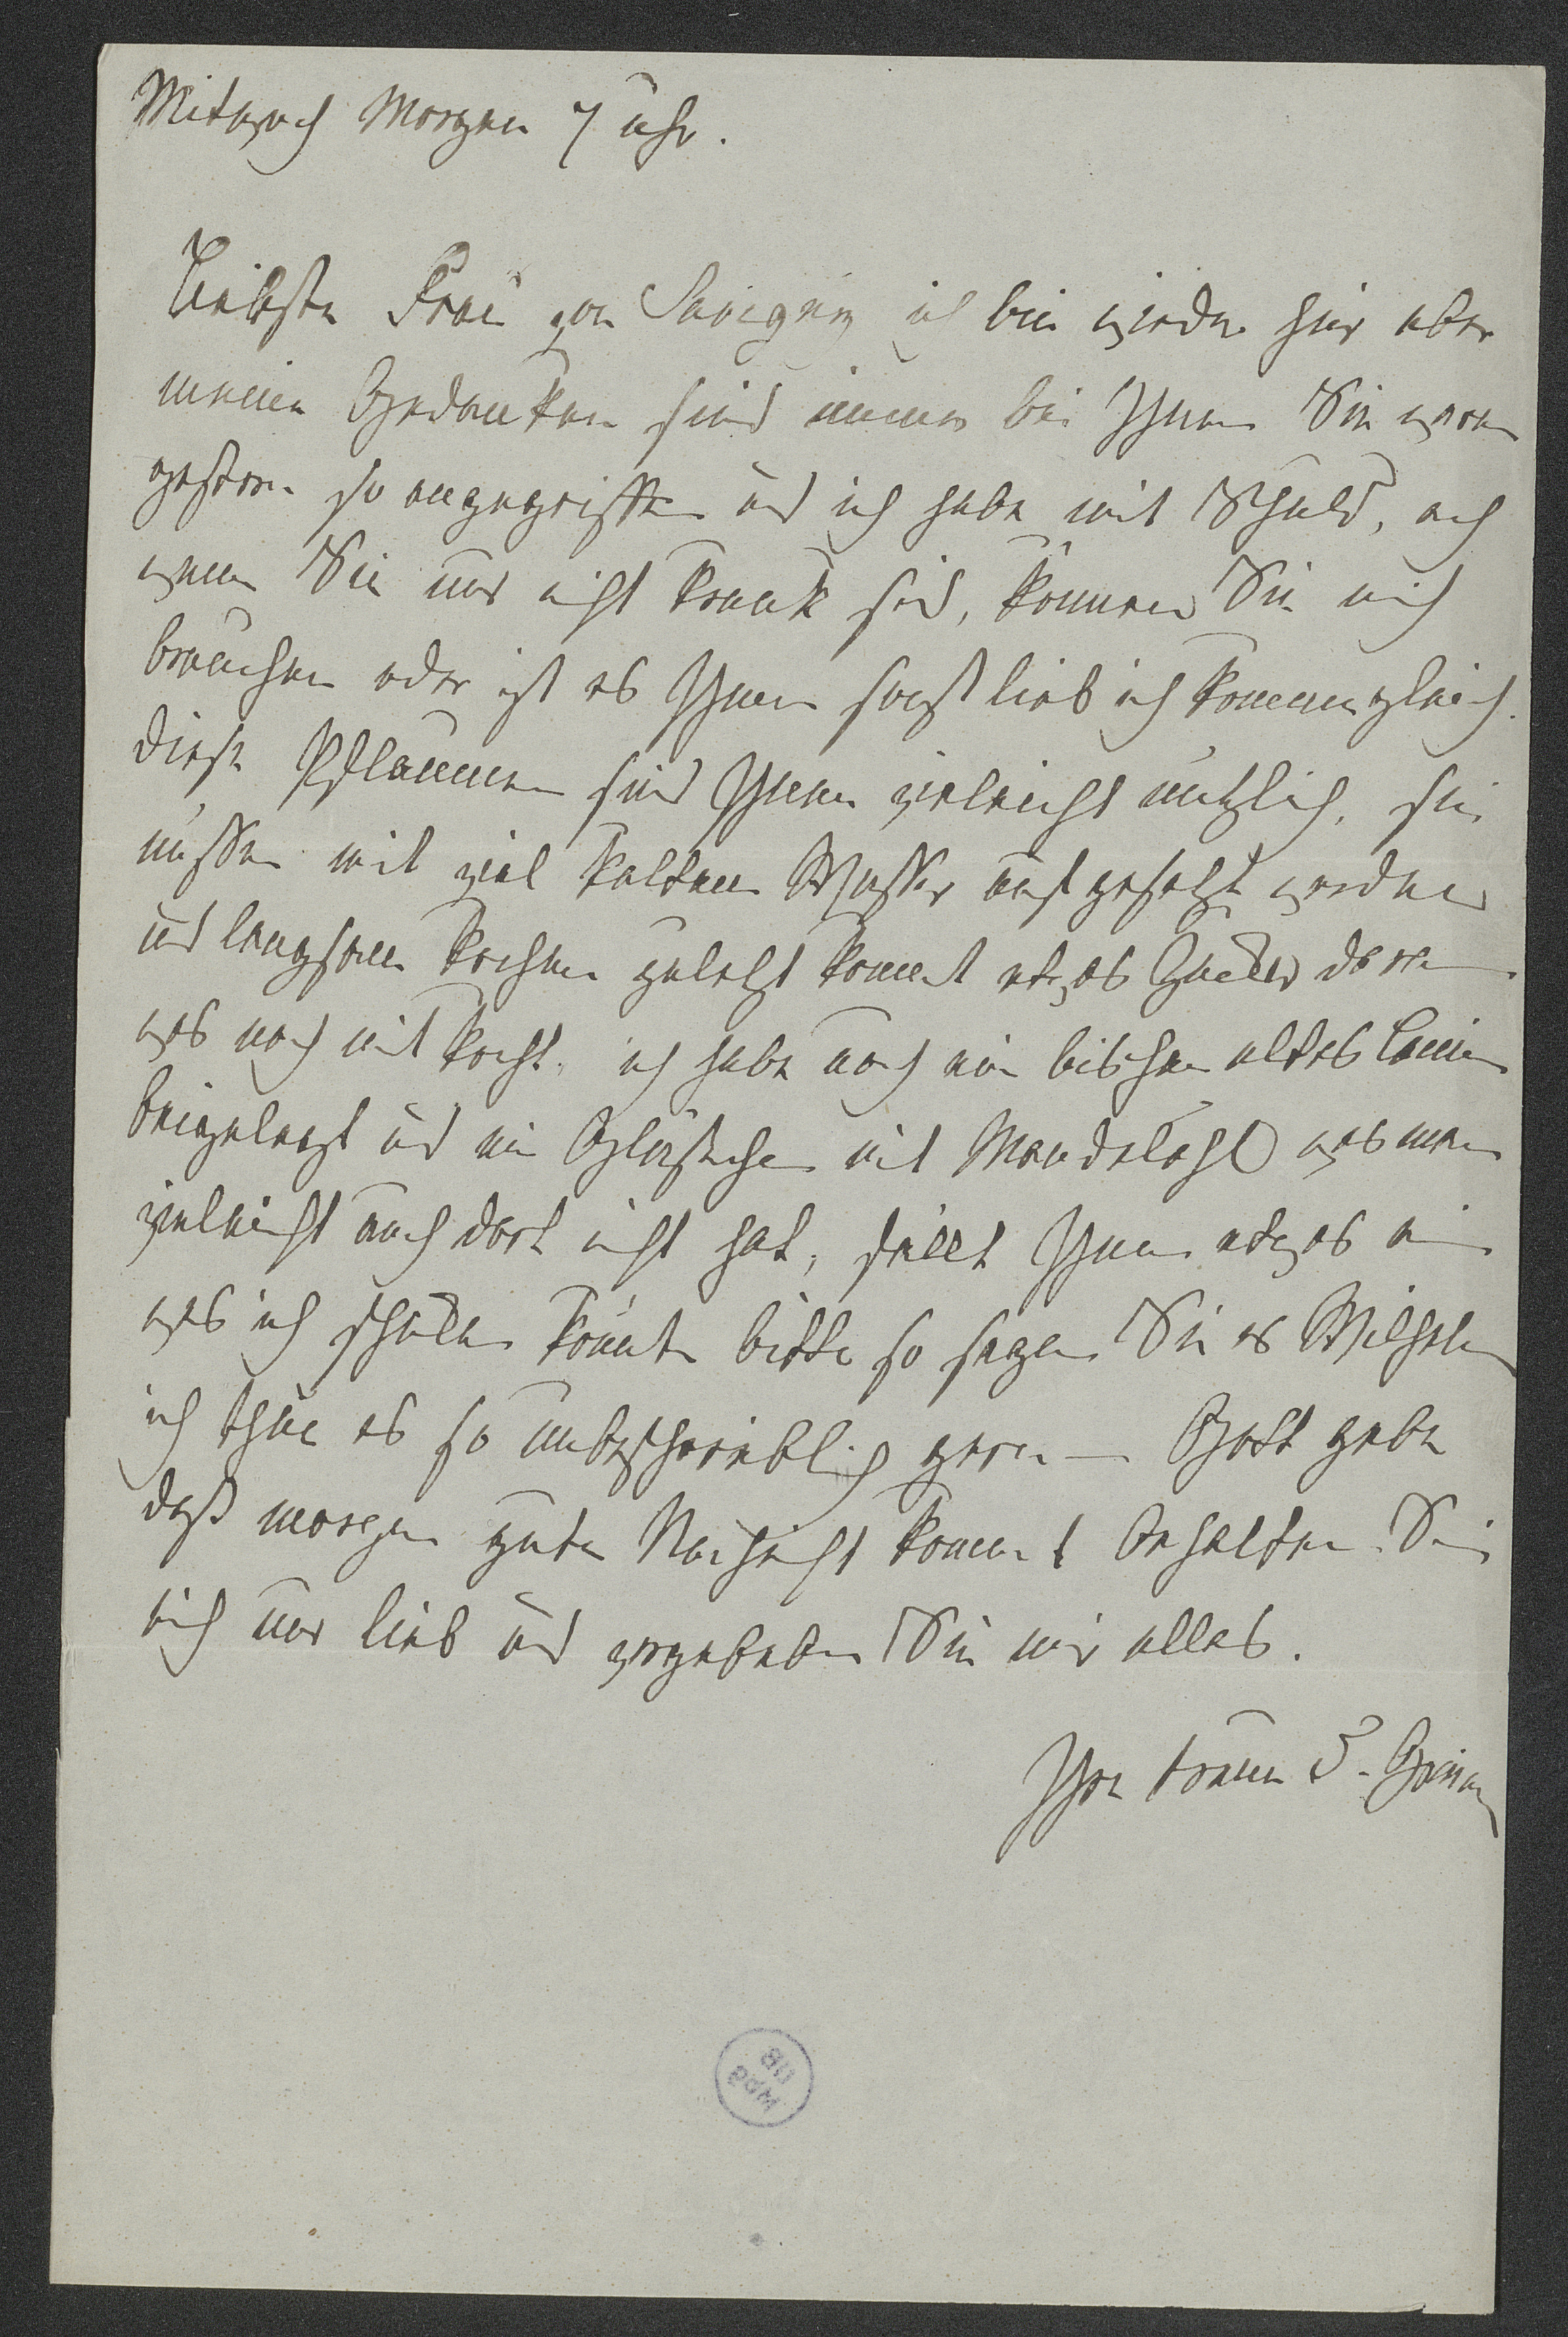 Mitwoch Morgen 7 Uhr.
Liebste Frau von Savigny ich bin wieder hier aber
meine Gedanken sind immer bei Ihnen Sie waren
gestern so angegriffen und ich habe mit Schuld, ach
wenn Sie nur nicht krank sind, können Sie mich
brauchen oder ist es Ihnen sonst lieb ich komme gleich.
diese Pflaumen sind Ihnen vieleicht nützlich, sie
müssen mit viel kaltem Wasser aufgesetzt werden
und langsam kochen zuletzt kommt etwas Zucker daran
was noch mit kocht. ich habe noch ein bischen altes Leinen
beigelegt und ein Gläschen mit Mandelöhl was man
vieleicht auch dort nicht hat, fällt Ihnen etwas ein
was ich schicken könnte bitte so sagen Sie es Wilhelm
ich thue es so unbeschreiblich gern — Gott gebe
daß morgen gute Nachricht kommt Behalten Sie
mich nur lieb und vergeben Sie mir alles.
Ihre treue D. Grimm
UB
Mbg